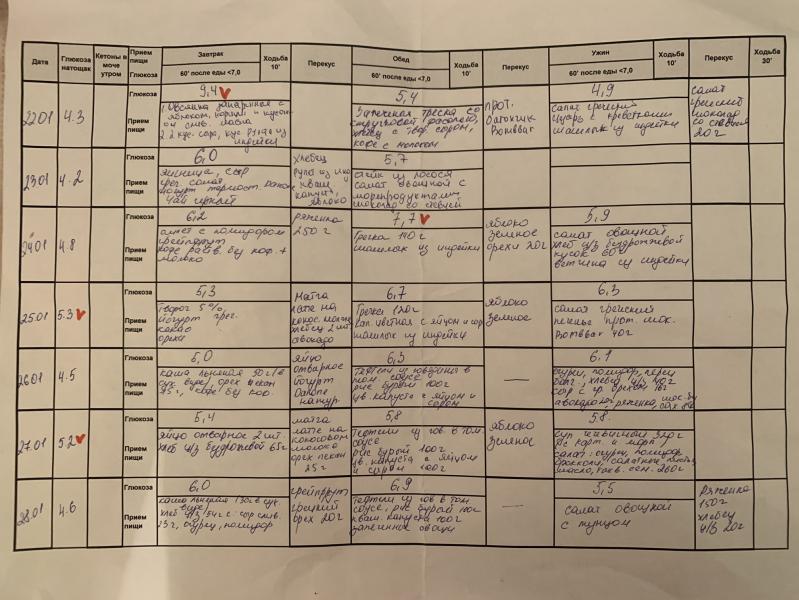 Дата
Глюкоза натощак
Кетоны в моче утром
Прием пищи
Глюкоза
Завтрак
60' после еды <7,0
Ходьба 10'
Перекус
Обед
60' после еды <7,0
Ходьба 10'
Перекус
Ужин
60' после еды <7,0
Ходьба 10'
Перекус
Ходьба 30'
22.01
4.3
Глюкоза
Прием пищи
9,4
1. Овсянка запаренная с
яблоком,
ой слив. масла
индейки
5,4
Запеченная треска со
стручковой фасолью,
хлебец с твор. сыром,
кофе с молоком
прот.
батончик
Bombbar
4,9
салат греческий
Цезарь с креветками
шашлык из индейки
салат
греческий
шоколад
со стевией
20 г
23.01
4.2
Глюкоза
Прием пищи
6,0
яичница, сыр
греч. салат
йогурт термост. Danone
чай
хлебец
кваш.
капуста,
яблоко
5,7
стейк из лосося
салат овощной с
морепродуктами
шоколад со стевией
24.01
4.8
Глюкоза
Прием пищи
6,2
омлет с помидором
грейпфрут
кофе раств. без коф. +
молоко
ряженка
250 г
7,7
Гречка 140 г
шашлык из индейки
яблоко
зеленое
орехи 20г
5,9
салат овощной
хлеб ц/з бездрожжевой
кусок 60 г
ветчина из индейки
25.01
5.3
Глюкоза
Прием пищи
5,3
Творог 5%,
йогурт греч.
какао
орехи
матча
латте на
кокос. молоке
хлебец 2 шт.
авокадо
6,7
Гречка 120г
кап. цветная с яйцом и сыр
шашлык из индейки
яблоко
зеленое
6,3
салат греческий
печенье прот. шок.
Bombbar 40г
26.01
4.5
Глюкоза
Прием пищи
5,0
каша льняная 30г (в
сух. виде), орех пекан
15г, кофе без коф.
яйцо
отварное
йогурт
Danone
натур.
6,3
Тефтели из говядины в
том. соусе
рис бурый 100г
цв. капуста с яйцом и
сыром
—
6,1
огурец, помидор, перец
болг., хлебец ц/з 40г
27.01
5.2
Глюкоза
Прием пищи
5,4
яйцо отварное 2 шт.
хлеб ц/з бездрожжевой 65г
матча
латте на
кокосовом
молоке
орех пекан
25 г
5,8
Тефтели из гов. в том.
соусе
рис бурый 100г
цв. капуста с яйцом
и сыром 100г
яблоко
зеленое
5.8
28.01
4.6
Глюкоза
Прием пищи
6,0
каша льняная 130г в сух.
виде
23г, огурец, помидор
грейпфрут
грецкий
орех 20г
6,9
Тефтели из гов в том.
соусе, рис бурый 110г
кваш. капуста 100г
запеченные овощи
—
5,5
салат овощной
с тунцом
Ряженка
150г
хлебец
ц/з 20г